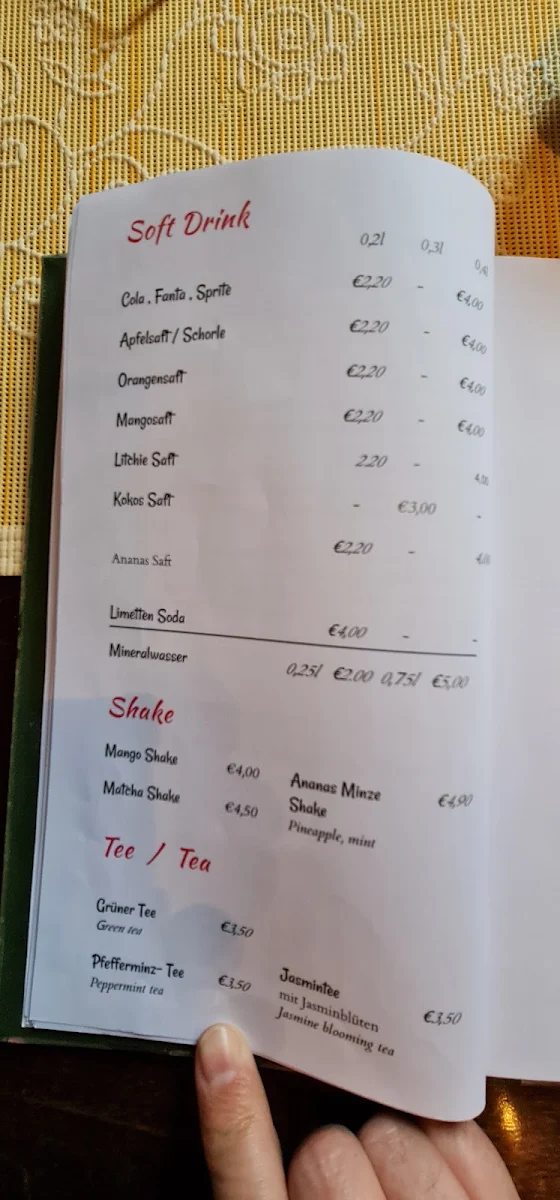 Soft Drink
0,2l 0,3l 0,4l
Cola . Fanta . Sprite €2,20 - €4,00
Apfelsaft / Schorle €2,20 - €4,00
Orangensaft €2,20 - €4,00
Mangosaft €2,20 - €4,00
Litchie Saft 2,20 - 4,00
Kokos Saft - €3,00 -
Ananas Saft €2,20 - 4,00
Limetten Soda €4,00 - -
Mineralwasser 0,25l €2.00 0,75l €5,00
Shake
Mango Shake €4,00
Matcha Shake €4,50
Ananas Minze
Shake €4,90
Pineapple, mint
Tee / Tea
Grüner Tee €3,50
Green tea
Pfefferminz- Tee €3,50
Peppermint tea
Jasmintee
mit Jasminblüten €3,50
Jasmine blooming tea